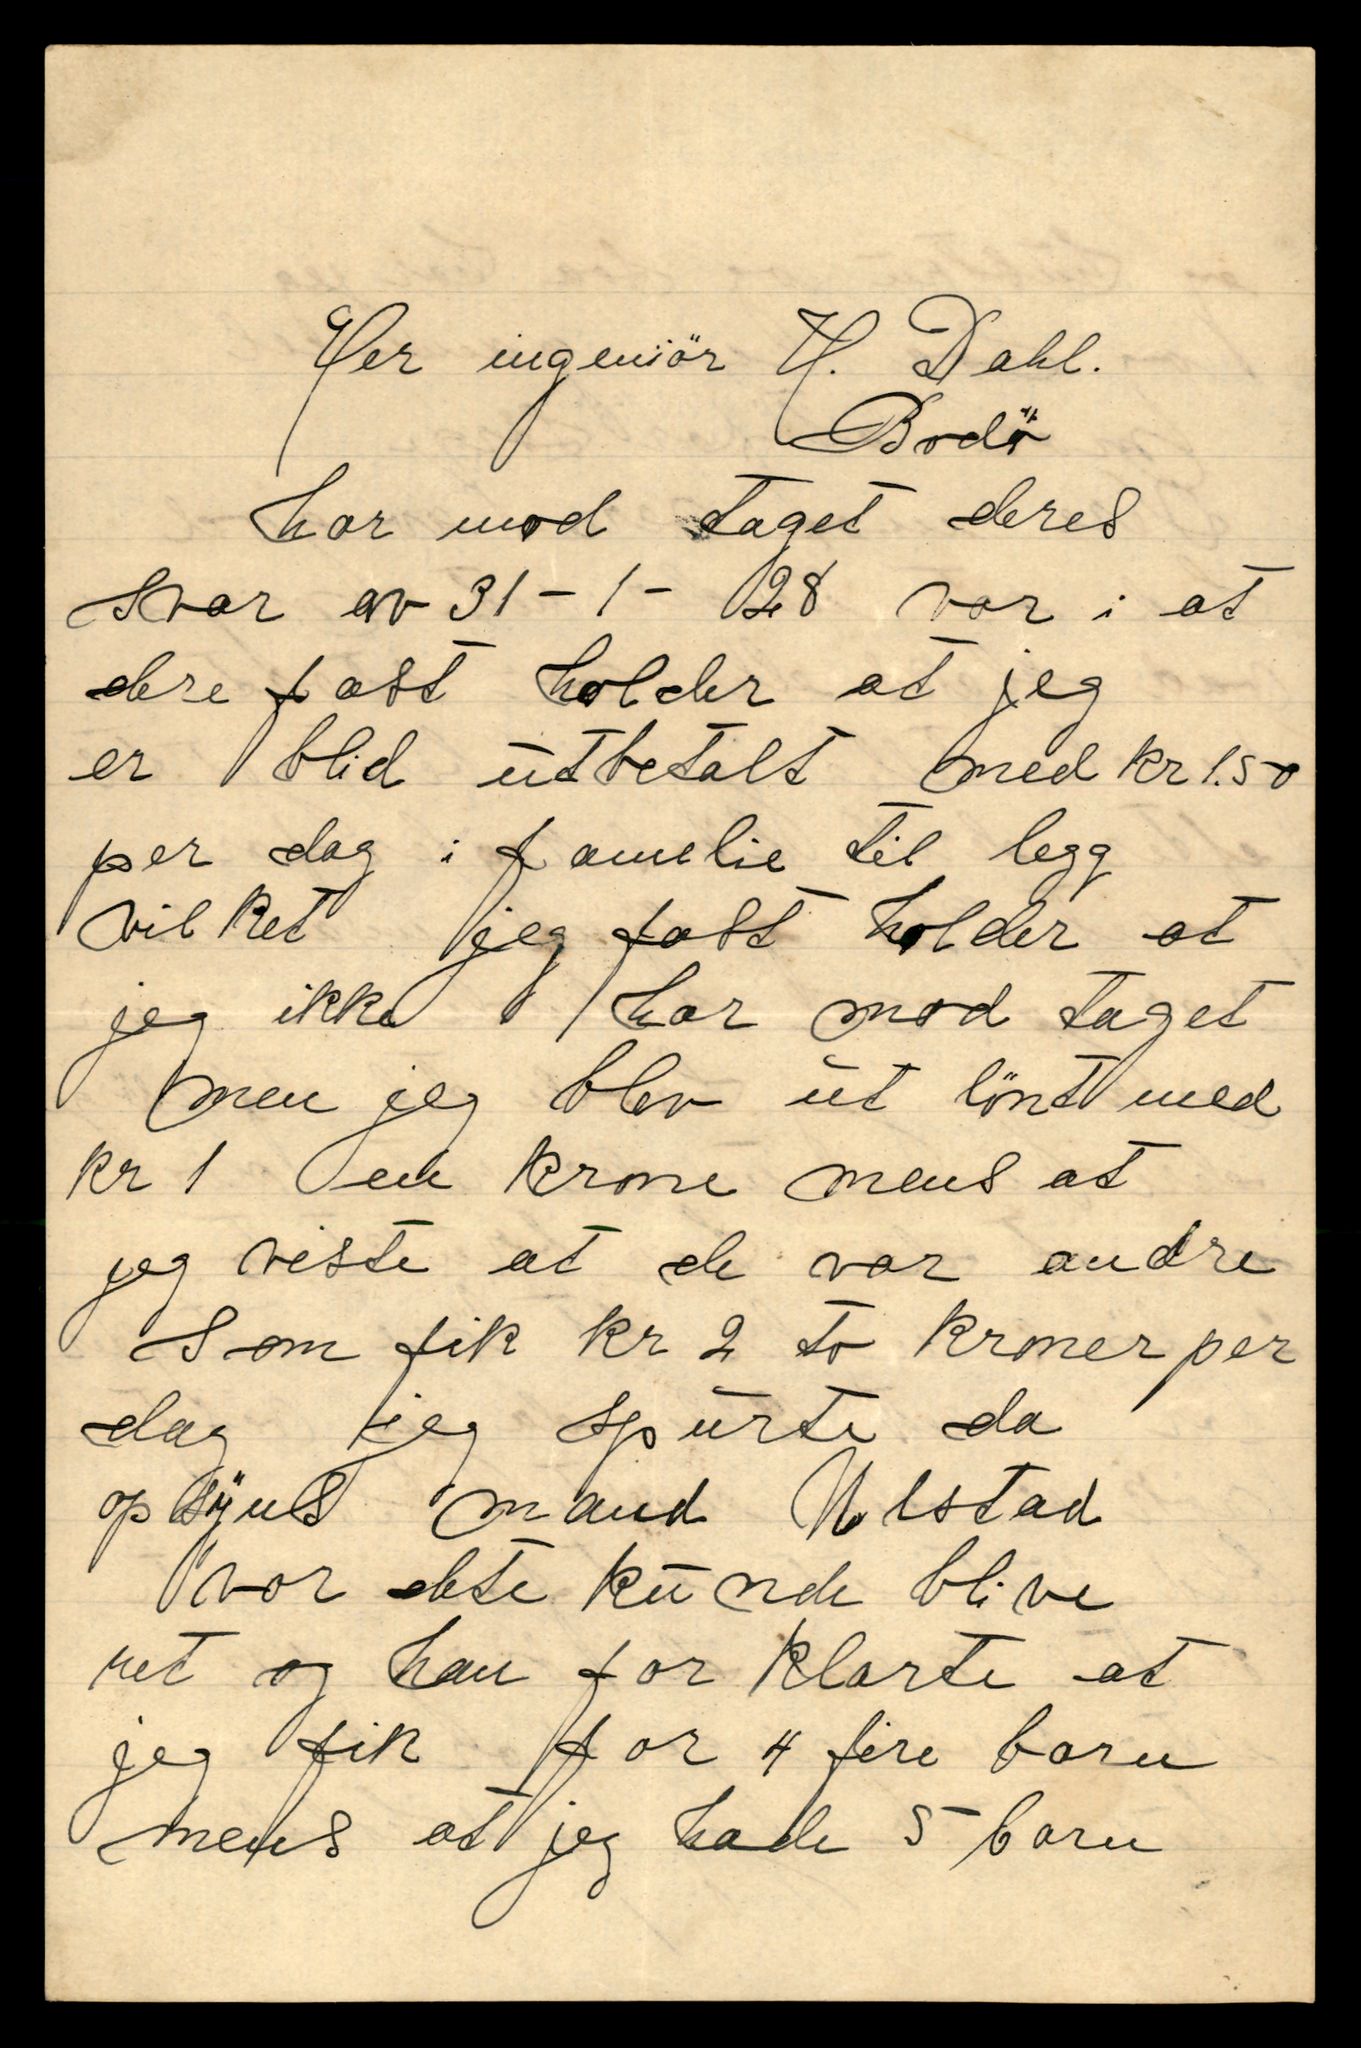 Her ingeniör H. Dahl.
Bodö
har mod taget deres
svar av 31-1-28 vor i at
dere fast holder at jeg
er blid utbetalt med kr 1.50
per dag i famelie til legg
vilket jeg fast holder at
jeg ikke har mod taget
men jeg blev ut lönt med
kr 1 en krone mens at
jeg viste at de var andre
som fik kr 2 to kroner per
dag jeg spurte da
opsyns mand Ulstad
vor dete kunde blive
ret og han for klarte at
jeg fik for 4 fire barn
mens at jeg hade 5 barn